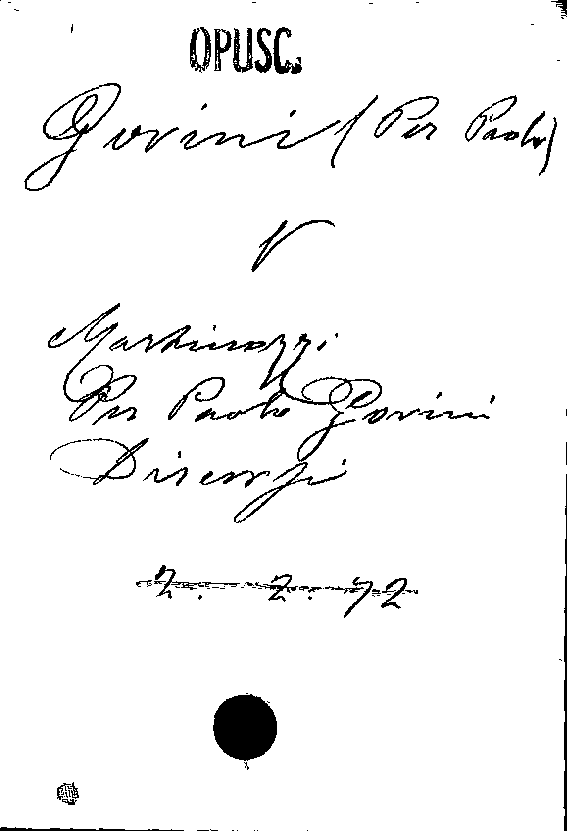 OPUSC.
Gorini (Per Paolo)
V
Martinazzi
Per Paolo Gorini
Discorsi
2. 2. 72